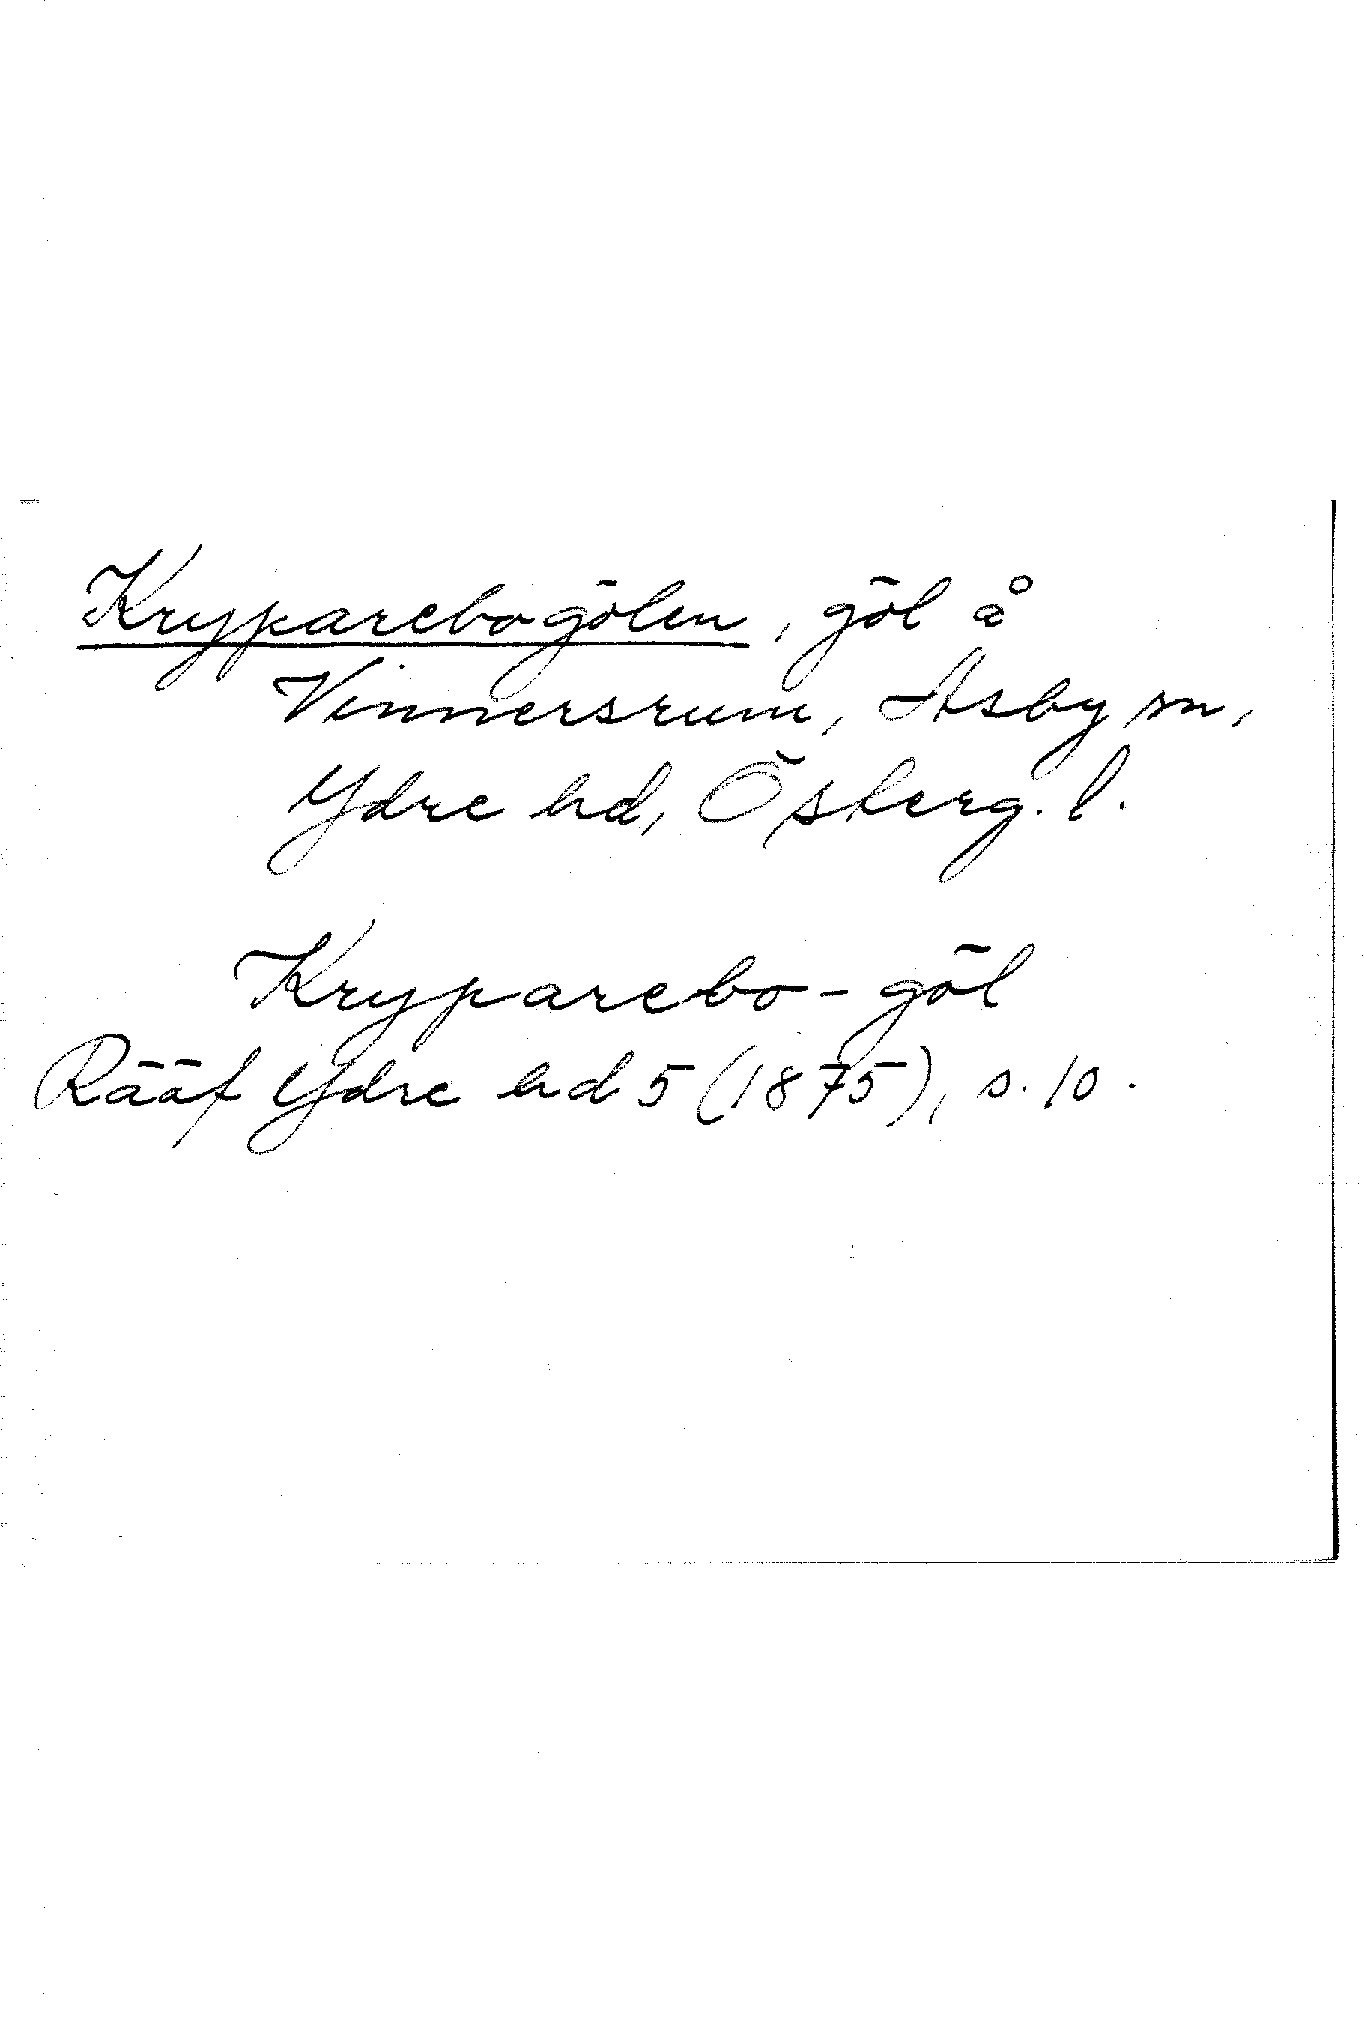 Kryparebogölen, göl å
Vinnersrum, Asby sn,
Ydre hd, Österg. l.
Kryparebo-göl
Rääf Ydre hd 5 (1875), s. 10.